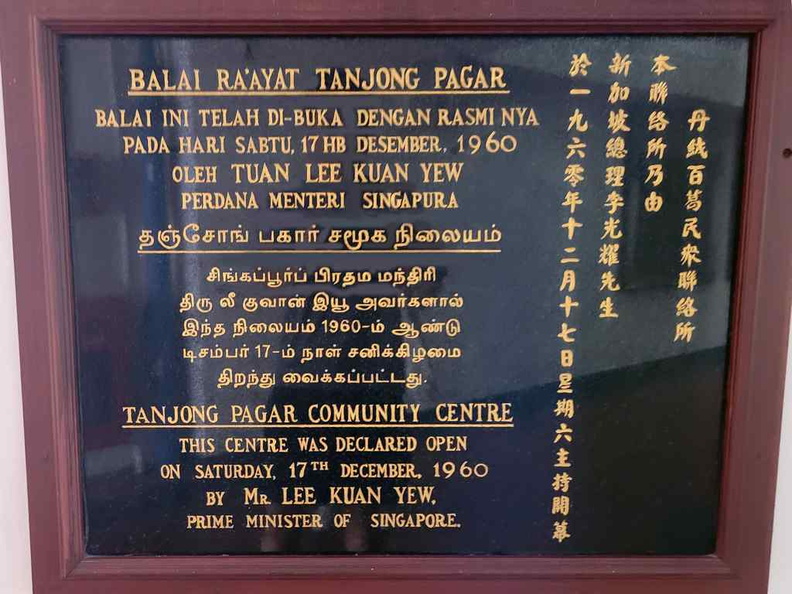 BALAI RA'AYAT TANJONG PAGAR
BALAI INI TELAH DI-BUKA DENGAN RASMI NYA
PADA HARI SABTU, 17HB DESEMBER, 1960
OLEH TUAN LEE KUAN YEW
PERDANA MENTERI SINGAPURA
தஞ்சோங் பகார் சமூக நிலையம்
சிங்கப்பூர்ப் பிரதம மந்திரி
திரு லீ குவான் இயூ அவர்களால்
இந்த நிலையம் 1960-ம் ஆண்டு
டிசம்பர் 17-ம் நாள் சனிக்கிழமை
திறந்து வைக்கப்பட்டது.
TANJONG PAGAR COMMUNITY CENTRE
THIS CENTRE WAS DECLARED OPEN
ON SATURDAY, 17TH DECEMBER, 1960
BY MR. LEE KUAN YEW,
PRIME MINISTER OF SINGAPORE.
丹絨百葛民衆聯絡所
本聯絡所乃由
新加坡總理李光耀先生
於一九六零年十二月十七日星期六主持開幕